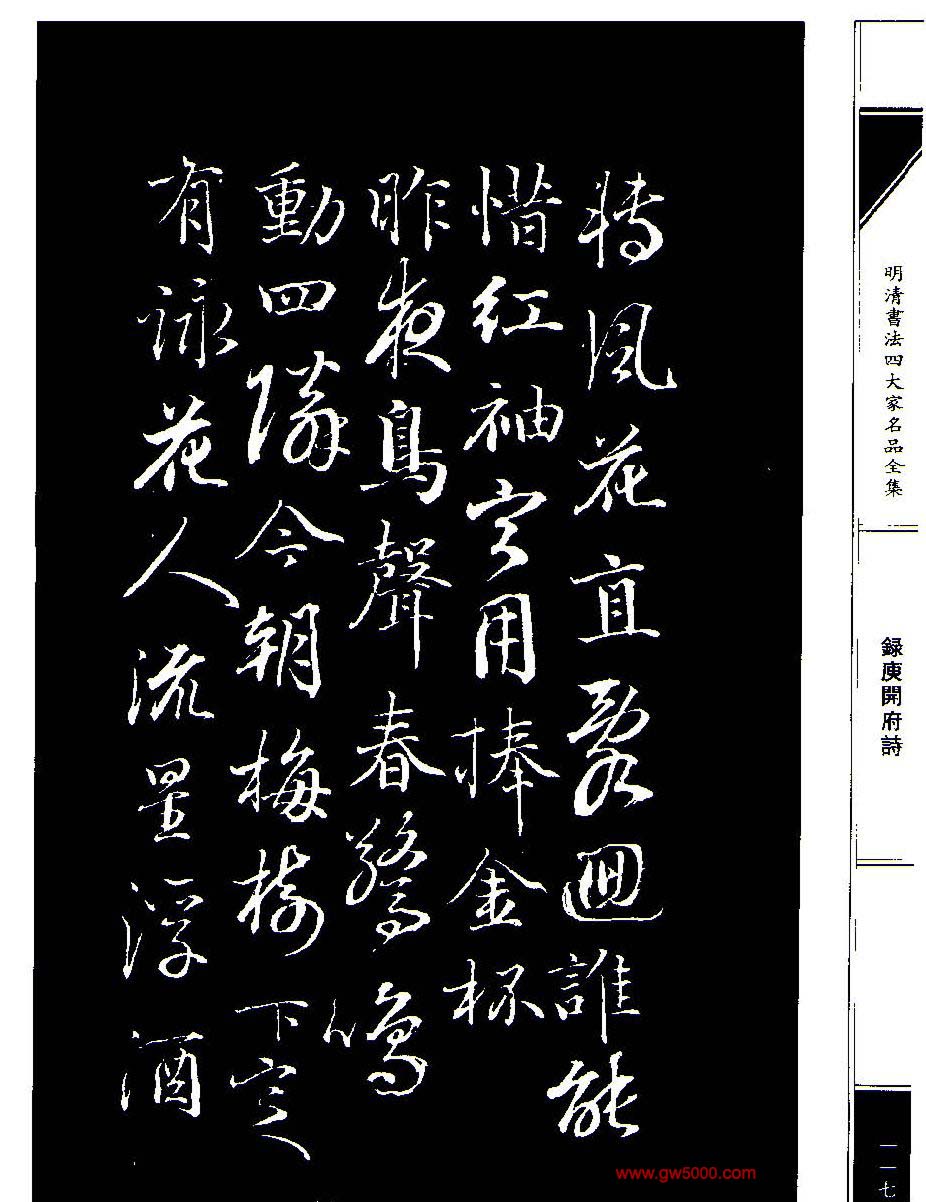 轉風花直亂迴誰能
惜紅袖寧用捧金杯
昨夜鳥聲春驚鳴
動四隣今朝梅樹下定
有詠花人流星浮酒
明清書法四大家名品全集
録庾開府詩
一一七
www.gw5000.com